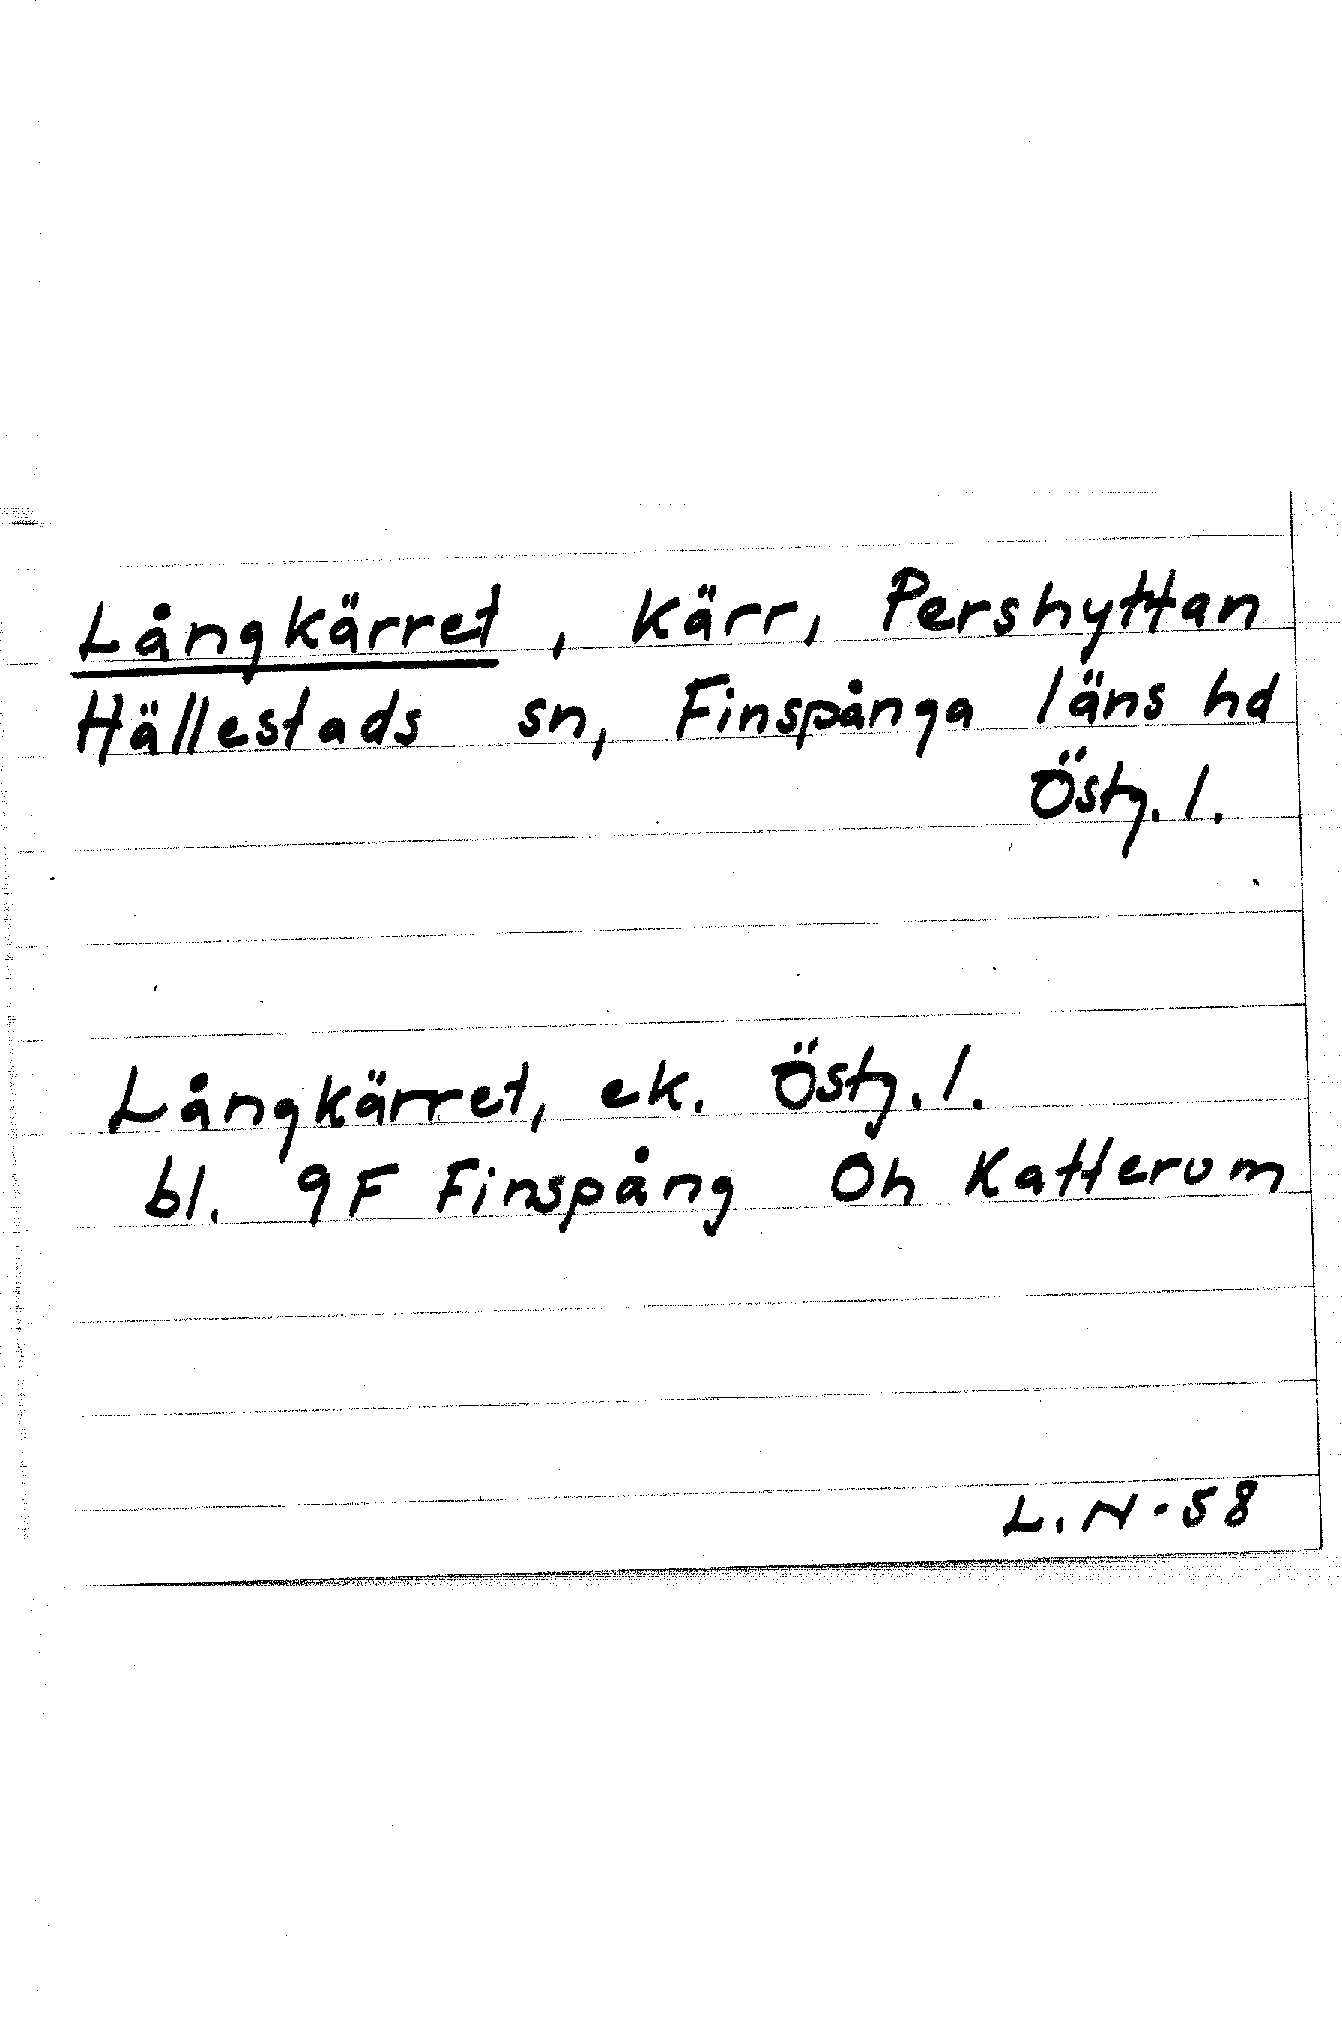 Långkärret, Kärr, Pershyttan
Hällestads sn, Finspånga läns hd
Östg. l.
Långkärret, ek. Östg. l.
bl. 9F Finspång Oh Katterum
L. N. 58